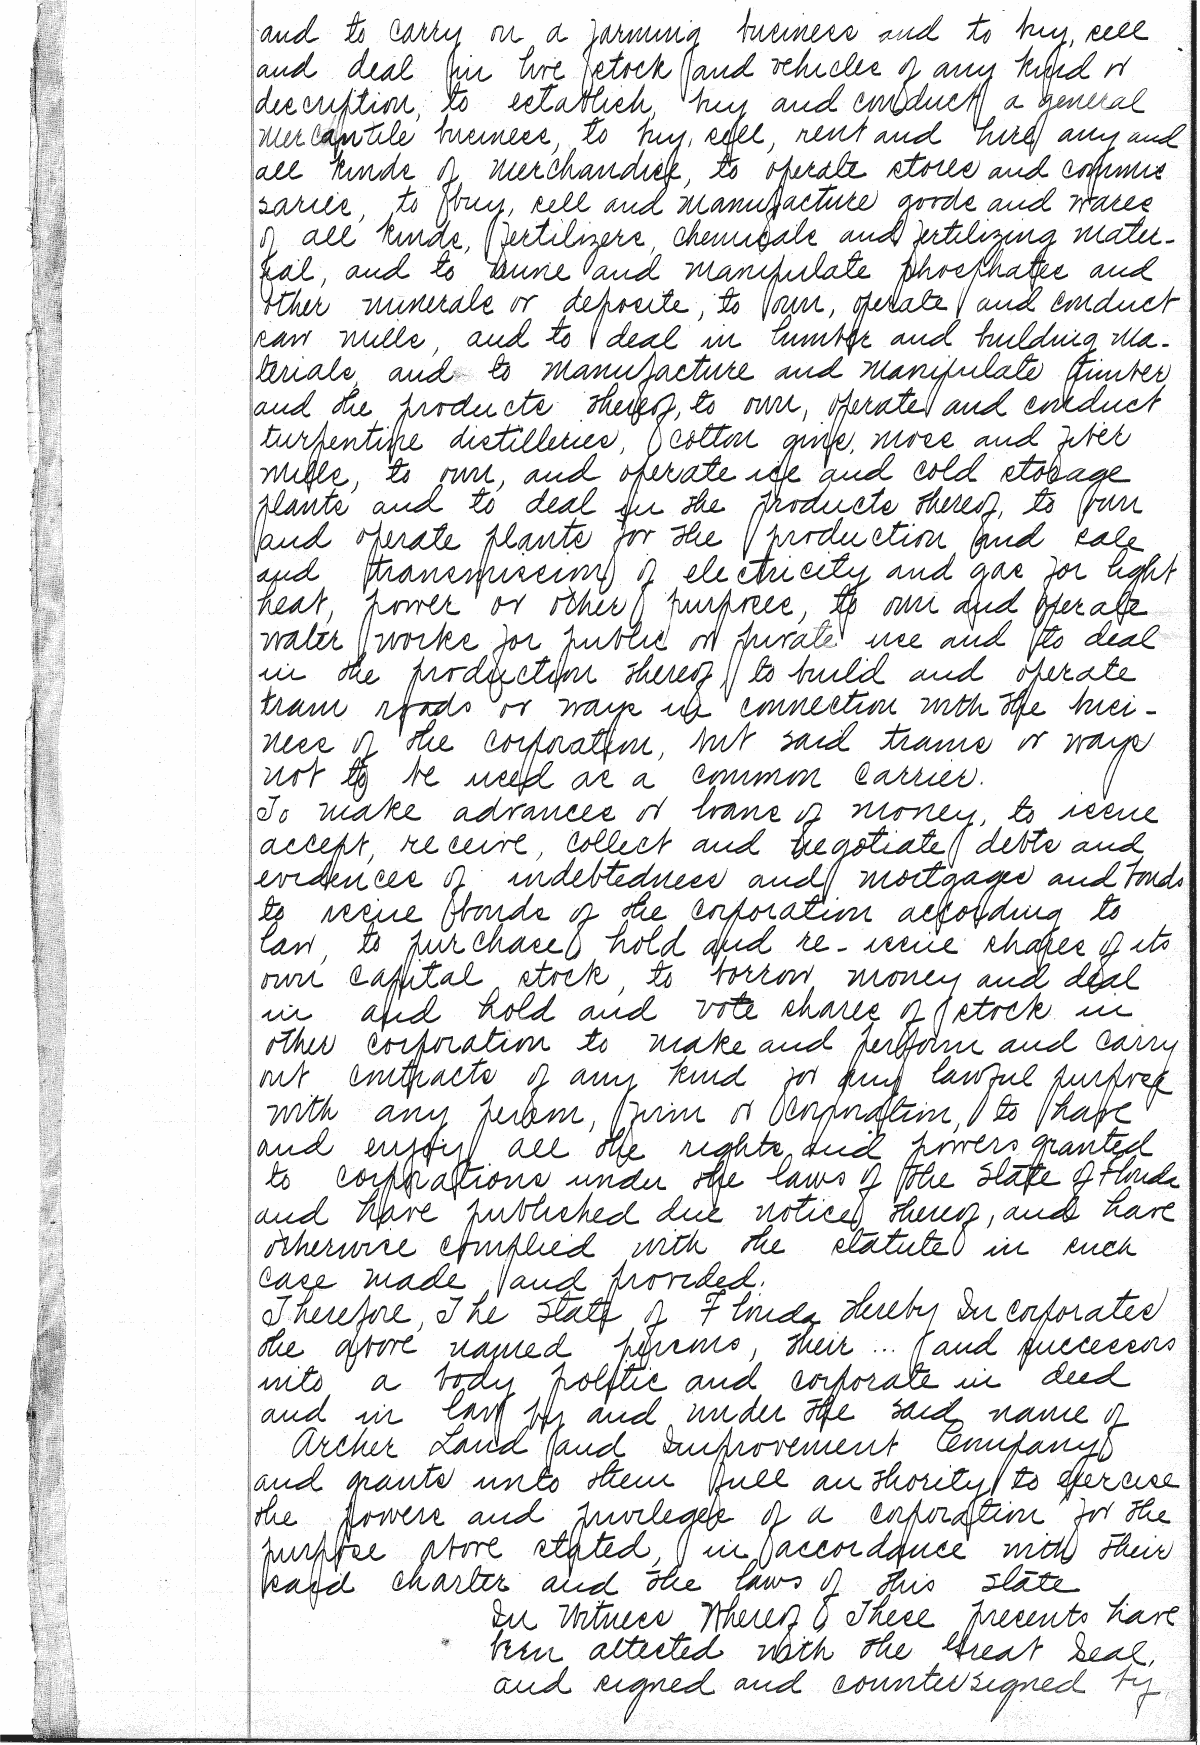 and to carry on a farming business and to buy, sell
and deal in live stock and vehicles of any kind or
description, to establish, buy and conduct a general
mercantile business, to buy, sell, rent and hire any and
all kinds of merchandise, to operate stores and commis
saries, to buy, sell and manufacture goods and wares
of all kinds, fertilizers, chemicals and fertilizing mater-
ial, and to mine and manipulate phosphates and
other minerals or deposits, to own, operate and conduct
saw mills, and to deal in lumber and building ma-
terials, and to manufacture and manipulate timber
and the products thereof, to own, operate and conduct
turpentine distilleries, cotton gins, moss and fiber
mills, to own, and operate ice and cold storage
plants and to deal in the products thereof, to own
and operate plants for the production and sale
and transmission of electricity and gas for light
heat, power or other purposes, to own and operate
water works for public or private use and to deal
in the production thereof, to build and operate
tram roads or ways in connection with the busi-
ness of the corporation, but said trams or ways
not to be used as a common carrier.
To make advances or loans of money, to issue
accept, receive, collect and negotiate debts and
evidences of indebtedness and mortgages and bonds
to issue bonds of the corporation according to
law, to purchase hold and re-issue shares of its
own capital stock, to borrow money and deal
in and hold and vote shares of stock in
other corporation to make and perform and carry
out contracts of any kind for any lawful purpose
with any person, firm or corporation, to have
and enjoy all the rights and powers granted
to corporations under the laws of the State of Florida
and have published due notice thereof, and have
otherwise complied with the statute in such
case made and provided.
Therefore, The State of Florida hereby Incorporates
the above named persons, their ... and successors
into a body politic and corporate in deed
and in law by and under the said name of
Archer Land and Improvement Company
and grants unto them full authority to exercise
the powers and privileges of a corporation for the
purpose above stated, in accordance with their
said charter and the laws of this State
In Witness Whereof These presents have
been attested with the Great Seal,
and signed and countersigned by